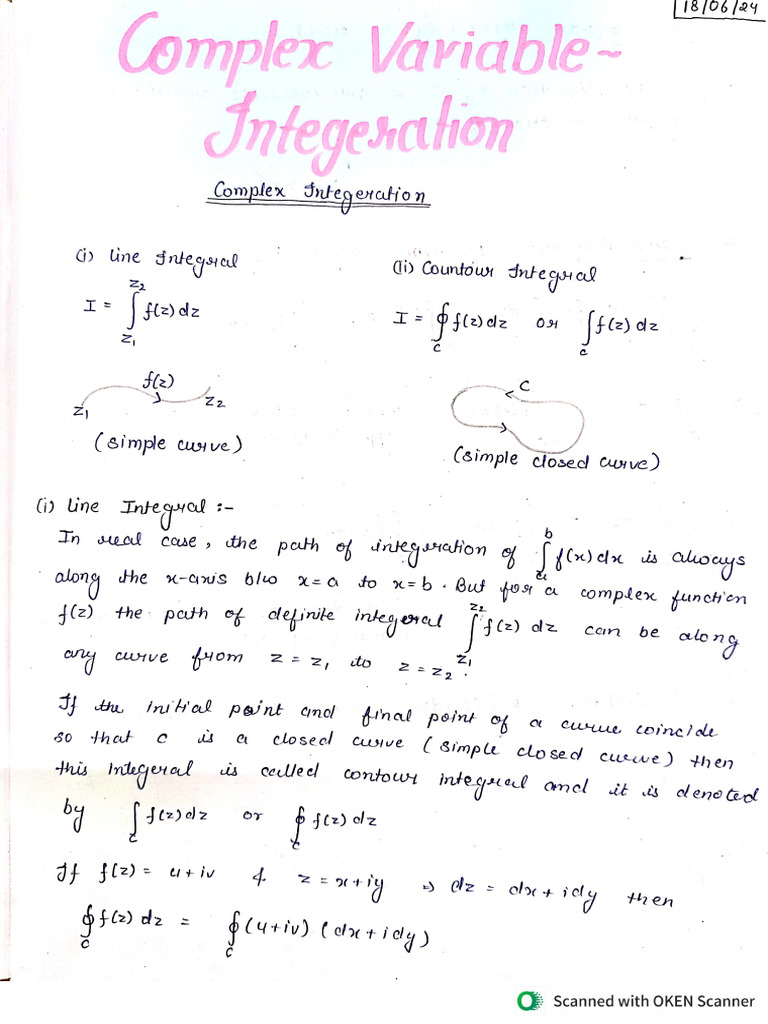 18/06/24
Complex Variable ~
Integeration
Complex Integeration
(i) Line Integral
(ii) Countour Integral
I = ∫_{z₁}^{z₂} f(z) dz
I = ∮_c f(z) dz or ∫_c f(z) dz
f(z)
z₁ z₂
C
(simple curve)
(simple closed curve)
(i) Line Integral :-
In real case, the path of integeration of ∫_a^b f(x) dx is always
along the x-axis b/w x=a to x=b. But for a complex function
f(z) the path of definite integeral ∫_{z₁}^{z₂} f(z) dz can be along
any curve from z = z₁ to z = z₂.
If the initial point and final point of a curve coincide
so that c is a closed curve (simple closed curve) then
this integeral is called contour integral and it is denoted
by ∫_c f(z) dz or ∮_c f(z) dz
If f(z) = u + iv & z = x + iy ⇒ dz = dx + idy then
∮_c f(z) dz = ∮_c (u + iv) (dx + idy)
Scanned with OKEN Scanner